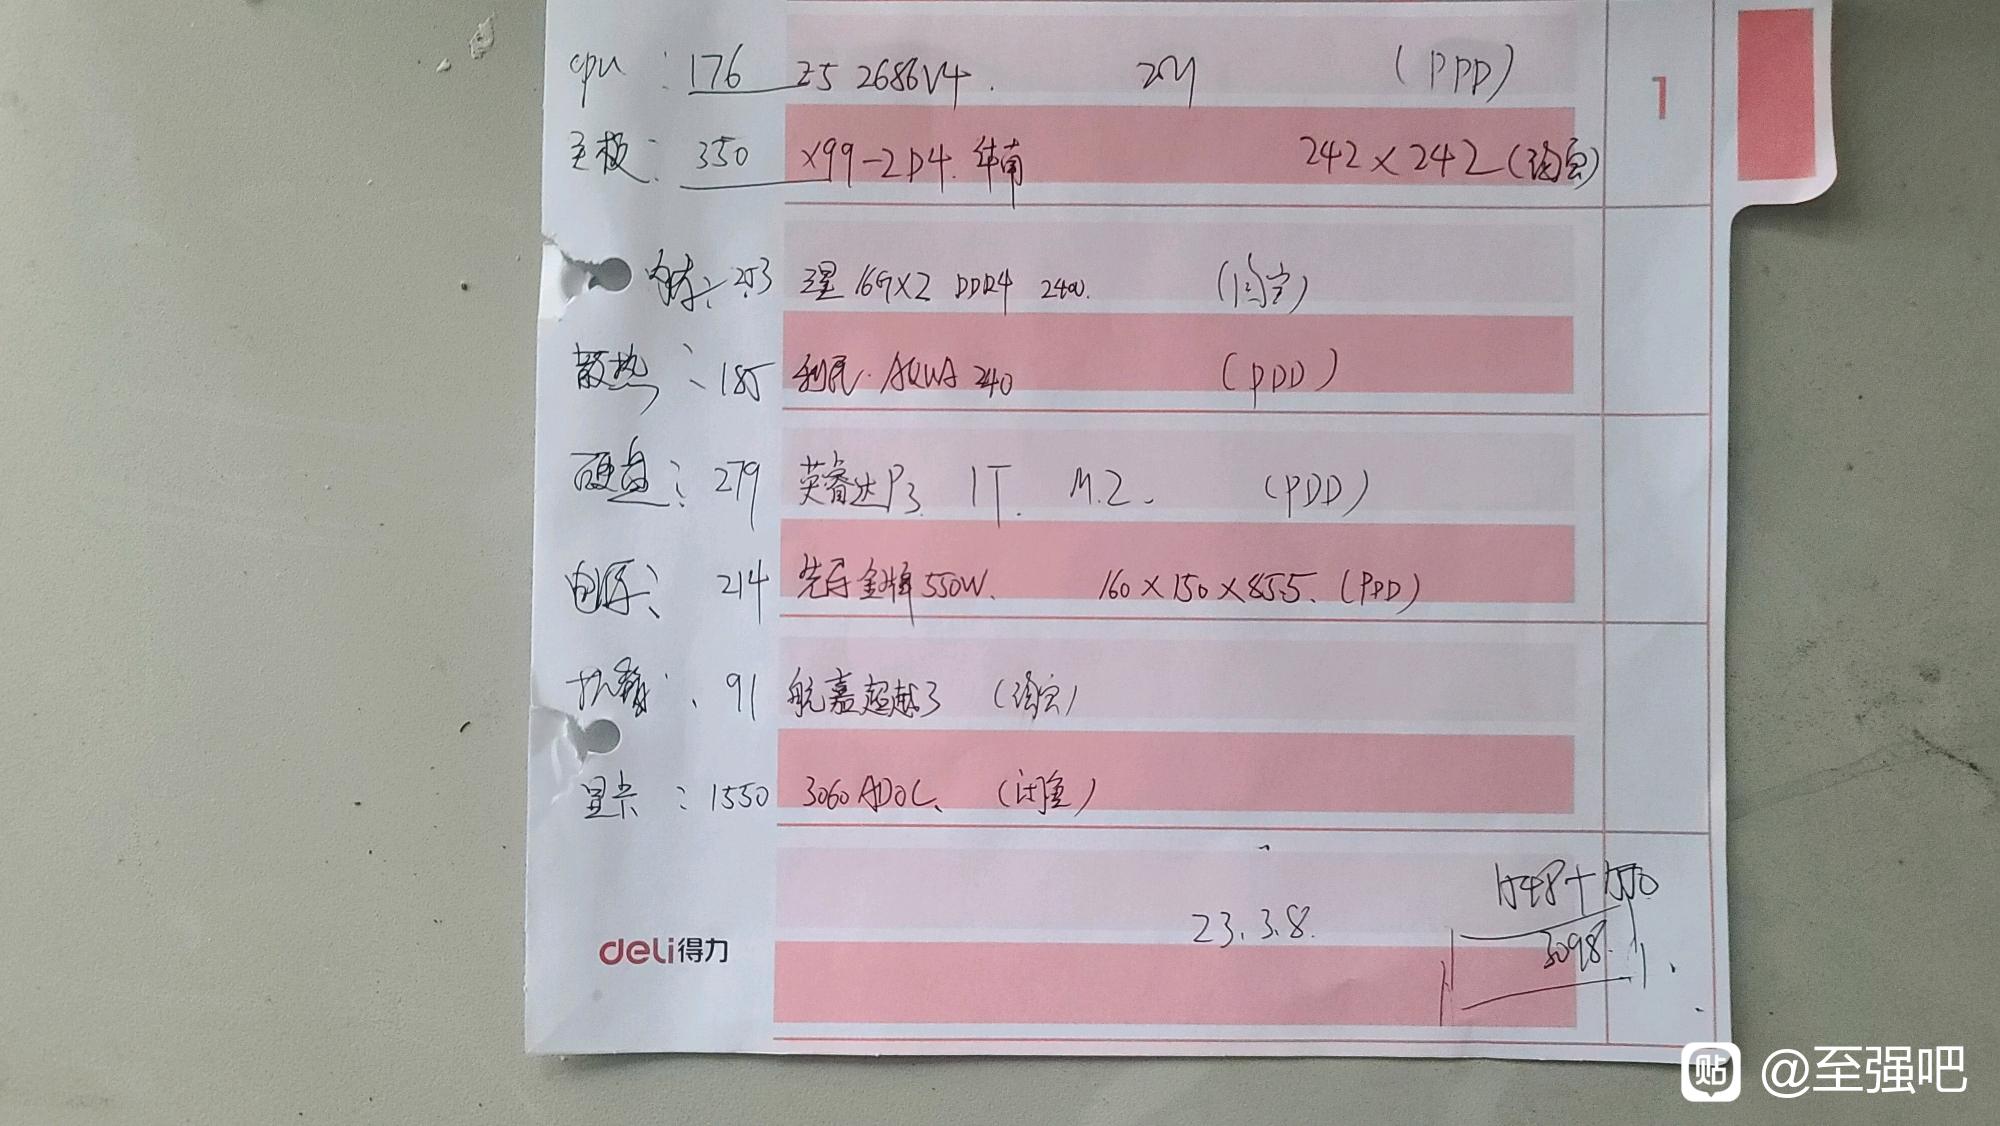 cpu : 176 E5 2686V4. 2M (PDD)
1
主板: 350 X99-2D4. 华南 242×242 (淘宝)
内存: 253 三星 16G×2 DDR4 2400. (淘宝)
散热: 185 利民. AQUA 240 (PDD)
硬盘: 279 英睿达P3. 1T. M.2. (PDD)
电源: 214 先马金牌550W. 160×150×85.5. (PDD)
机箱: 91 航嘉超越3 (淘宝)
显卡: 1550 3060 ADOC. (闲鱼)
1548+1550
23.3.8.
3098.
deli得力
贴 @至强吧